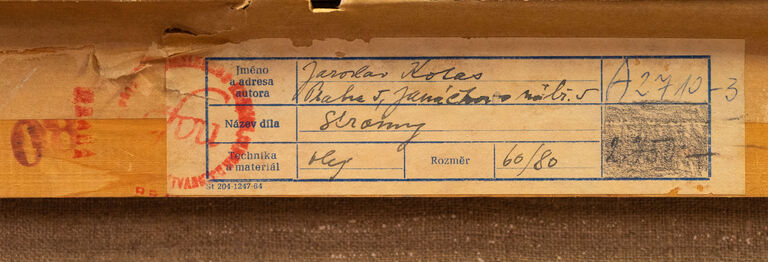 Jméno
a adresa
autora
Jaroslav Kolas
Praha 5, Janáčkovo nábř. 5
A 2710-3
Název díla
Stromy
Technika
a materiál
olej
Rozměr
60/80
St 204-1247-64
PRAHA